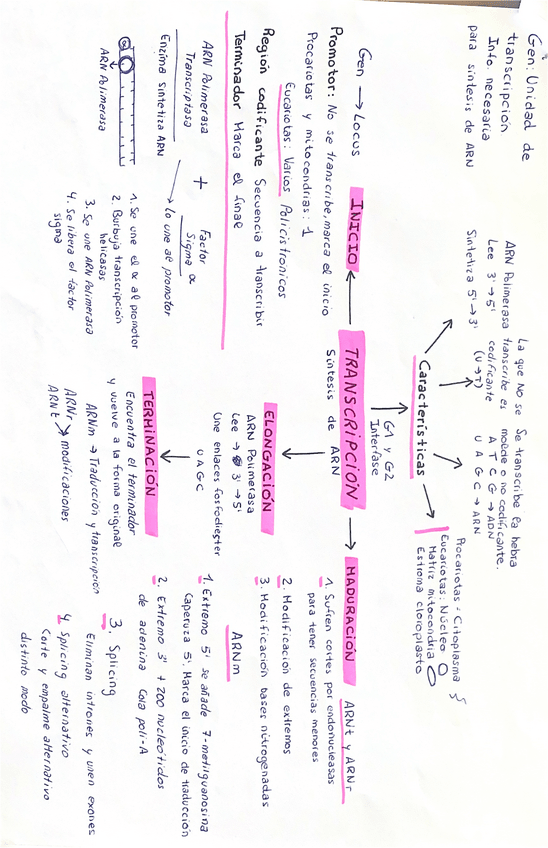 Gen: Unidad de
transcripción
Info. necesaria
para síntesis de ARN
ARN Polimerasa
Lee 3' → 5'
Sintetiza 5' → 3'
La que NO se
transcribe es
codificante
(U → T)
Se transcribe la hebra
molde o no codificante.
A T C G → ADN
U A G C → ARN
Procariotas - Citoplasma
Eucariotas: Núcleo
Matriz mitocondria
Estroma cloroplasto
Características
G1 y G2
Interfase
TRANSCRIPCIÓN
Síntesis de ARN
INICIO
Gen → Locus
Promotor: No se transcribe, marca el inicio
Procariotas y mitocondrias: 1
Eucariotas: Varios Policistronicos
Región codificante Secuencia a transcribir
Terminador Marca el final
ARN Polimerasa + Factor
Transcriptasa Sigma α
Enzima sintetiza ARN → lo une al promotor
α
ARN Polimerasa
1. Se une el α al promotor
2. Burbuja transcripción
helicasas
3. Se une ARN Polimerasa
4. Se libera el factor
sigma
ELONGACIÓN
ARN Polimerasa
Lee → 3' → 5'
Une enlaces fosfodiester
U A G C
TERMINACIÓN
Encuentra el terminador
y vuelve a la forma original
ARNm → Traducción y transcripción
ARNr
ARNt > modificaciones
MADURACIÓN
ARNt y ARNr
1. Sufren cortes por endonucleasas
para tener secuencias menores
2. Modificación de extremos
3. Modificación bases nitrogenadas
ARNm
1. Extremo 5' se añade 7-metilguanosina
Caperuza 5'. Marca el inicio de traducción
2. Extremo 3' + 200 nucleótidos
de adenina Cola poli-A
3. Splicing
Eliminan intrones y unen exones
4. Splicing alternativo
Corte y empalme alternativo
distinto modo